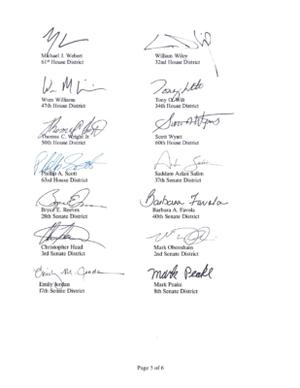 Michael J. Webert
61st House District
William Wiley
32nd House District
Wren Williams
47th House District
Tony O. Wilt
34th House District
Thomas C. Wright Jr.
50th House District
Scott Wyatt
60th House District
Phillip Scott
Phillip A. Scott
63rd House District
Saddam Azlan Salim
37th Senate District
Bryce E. Reeves
28th Senate District
Barbara Favola
Barbara A. Favola
40th Senate District
Christopher Head
3rd Senate District
Mark Obenshain
2nd Senate District
Emily M. Jordan
Emily Jordan
17th Senate District
Mark Peake
Mark Peake
8th Senate District
Page 5 of 6